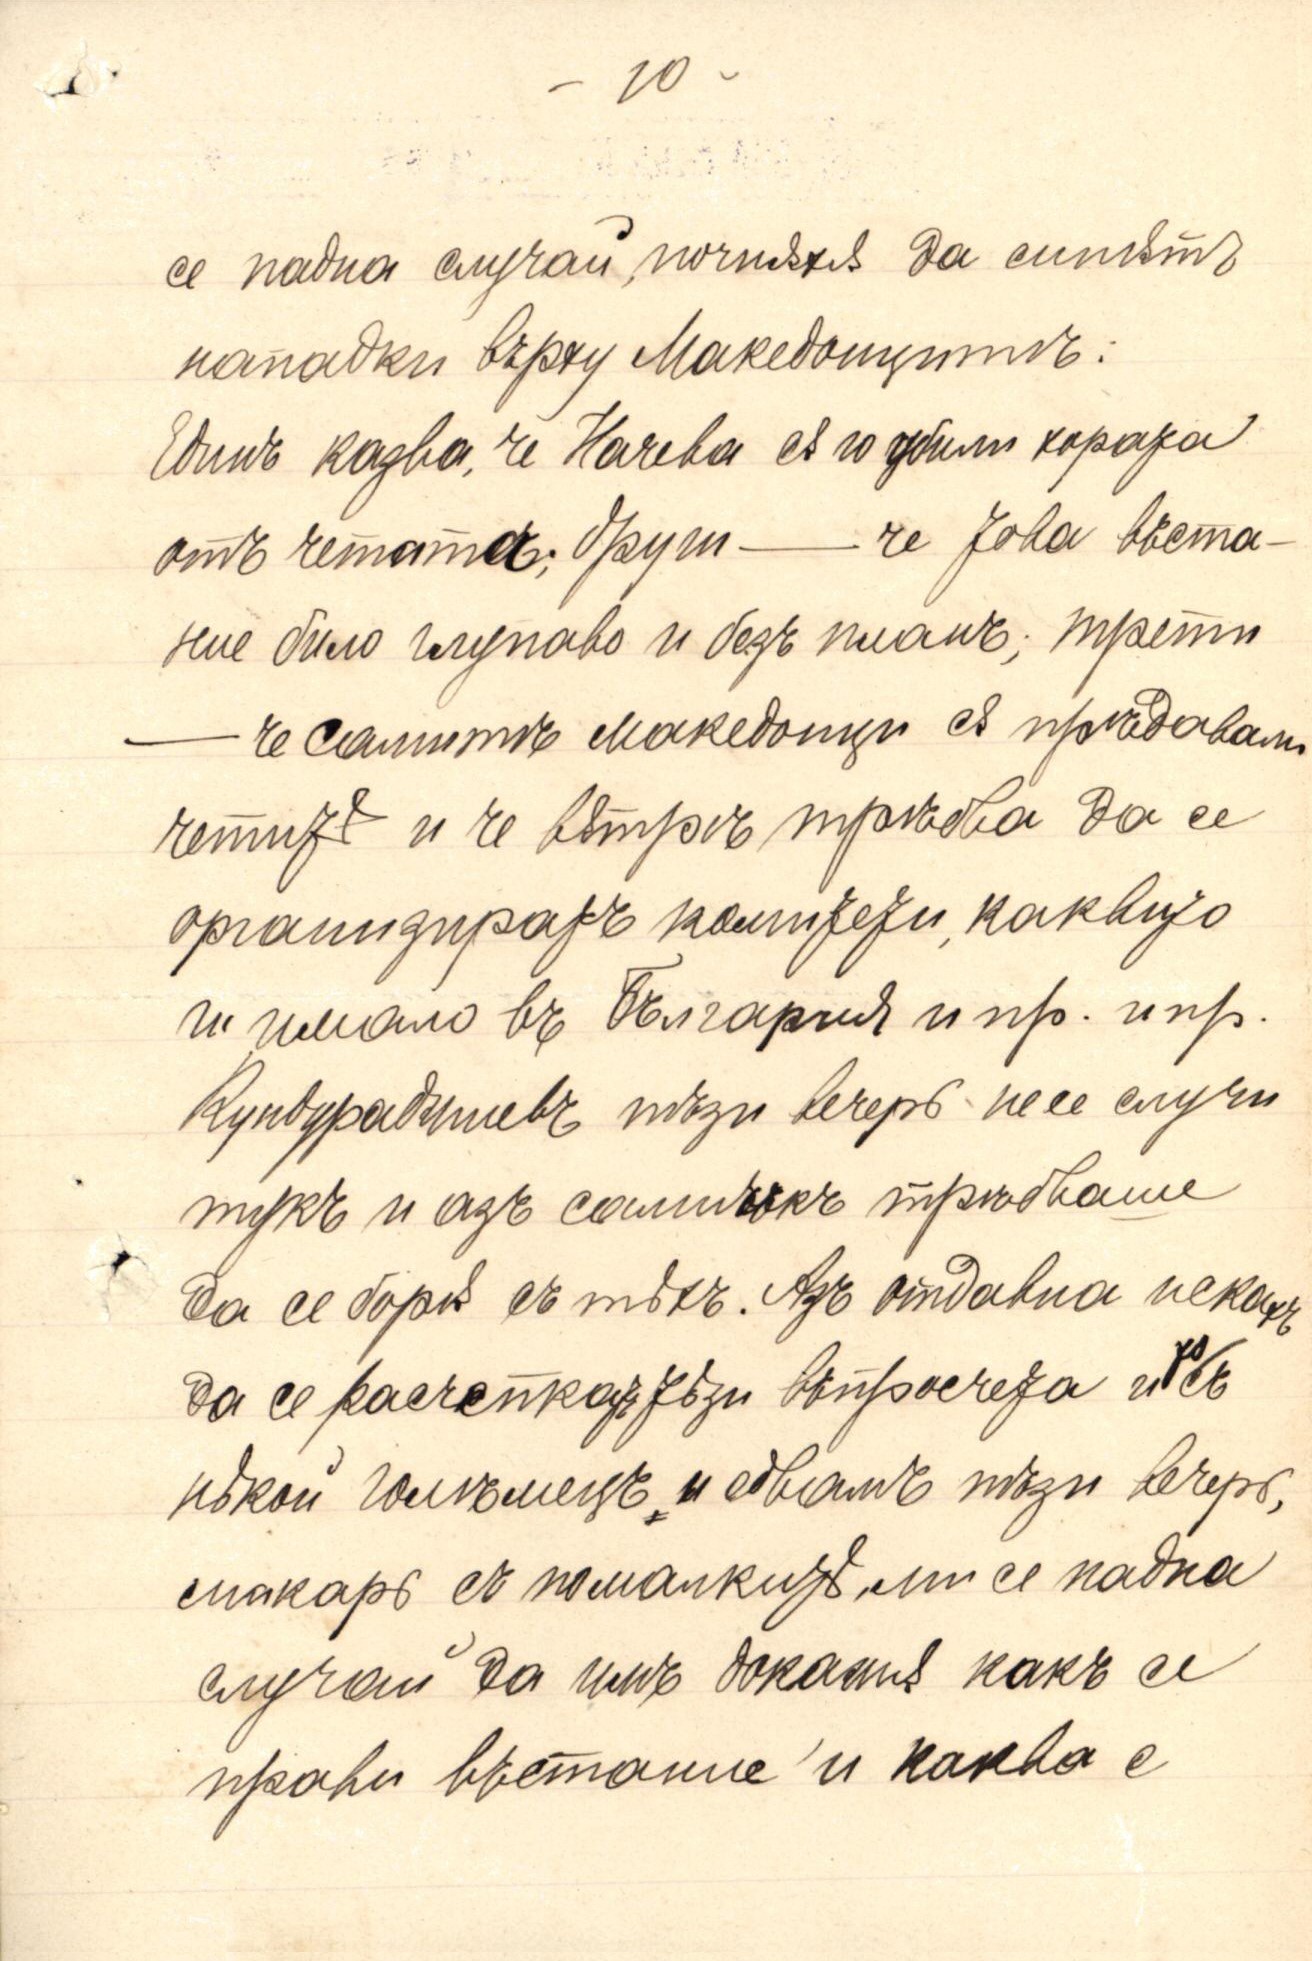 - 10 -
се падна случай, почнѫхѫ да сипѭтъ
нападки върху Македонцитѣ:
Единъ казва, че Начева сѫ го убили хората
отъ четата; други — че това въста-
ние било глупаво и безъ планъ; трети
— че самитѣ Македонци сѫ прѣдавали
четитѣ и че вѫтрѣ трѣбва да се
организиратъ комитети, каквито
и имало въ България и пр. и пр.
Кундураджиевъ тѣзи вечерь не се случи
тукъ и азъ самичъкъ трѣбваше
да се борѭ съ тѣхъ. Азъ отдавна искахъ
да се расчепкатъ тѣзи въпросчета и то съ
нѣкой голѣмецъ, и едвамъ тѣзи вечерь,
макаръ съ помалкитѣ, ми се падна
случай да имъ докажѫ какъ се
прави въстание и каква е